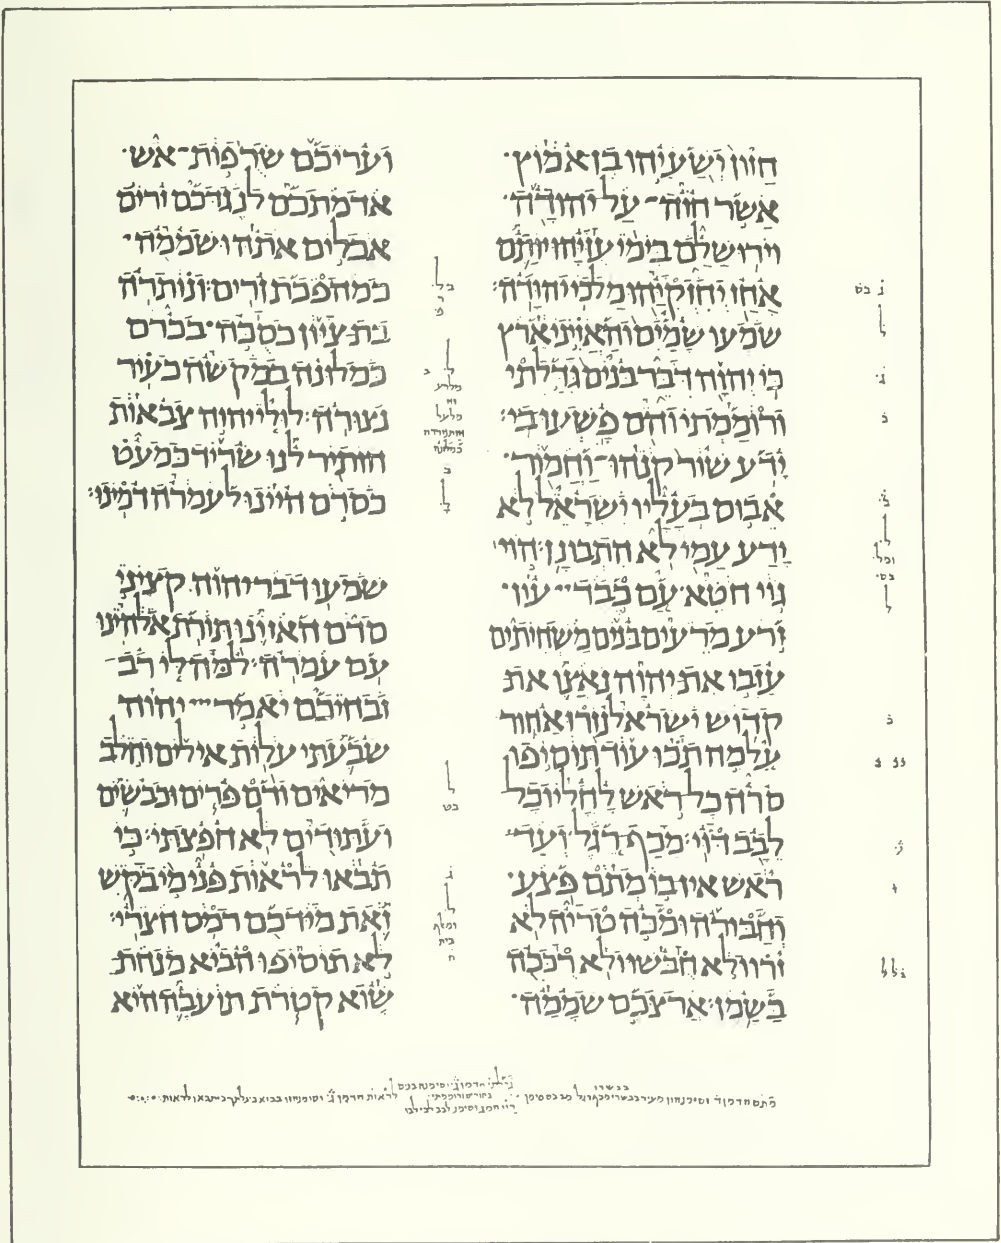 חזון ישעיהו בן אמוץ·
אשר חזה־ על יהודה·
וירושלם בימי עזיהו יותם
אחז יחזקיהו מלכי יהודה׃
שמעו שמים והאזיני ארץ
כי יהוה דבר בנים גדלתי
ורוממתי והם פשעו בי׃
ידע שור קנהו־ וחמור·
אבוס בעליו ישראל לא
ידע עמי לא התבונן׃ הוי
גוי חטא עם כבד עון·
זרע מרעים בנים משחיתים
עזבו את יהוה נאצו את
קדוש ישראל נזרו אחור
על מה תכו עוד תוסיפו
סרה כל ראש לחלי וכל
לבב דוי׃ מכף רגל ועד־
ראש אין בו מתם פצע·
וחבורה ומכה טריה לא
זרו ולא חבשו ולא רככה
בשמן׃ ארצכם שממה·
ועריכם שרפות־אש·
אדמתכם לנגדכם זרים
אכלים אתה ושממה·
כמהפכת זרים׃ ונותרה
בת ציון כסכה· בכרם
כמלונה במקשה כעיר
נצורה׃ לולי יהוה צבאות
הותיר לנו שריד כמעט
כסדם היינו לעמרה דמינו׃
שמעו דבר יהוה קציני
סדם האזינו תורת אלהינו
עם עמרה׃ למה לי רב־
זבחיכם יאמר יהוה
שבעתי עלות אילים וחלב
מריאים ודם פרים וכבשים
ועתודים לא חפצתי׃ כי
תבאו לראות פני מי בקש
זאת מידכם רמס חצרי׃
לא תוסיפו הביא מנחת־
שוא קטרת תועבה היא